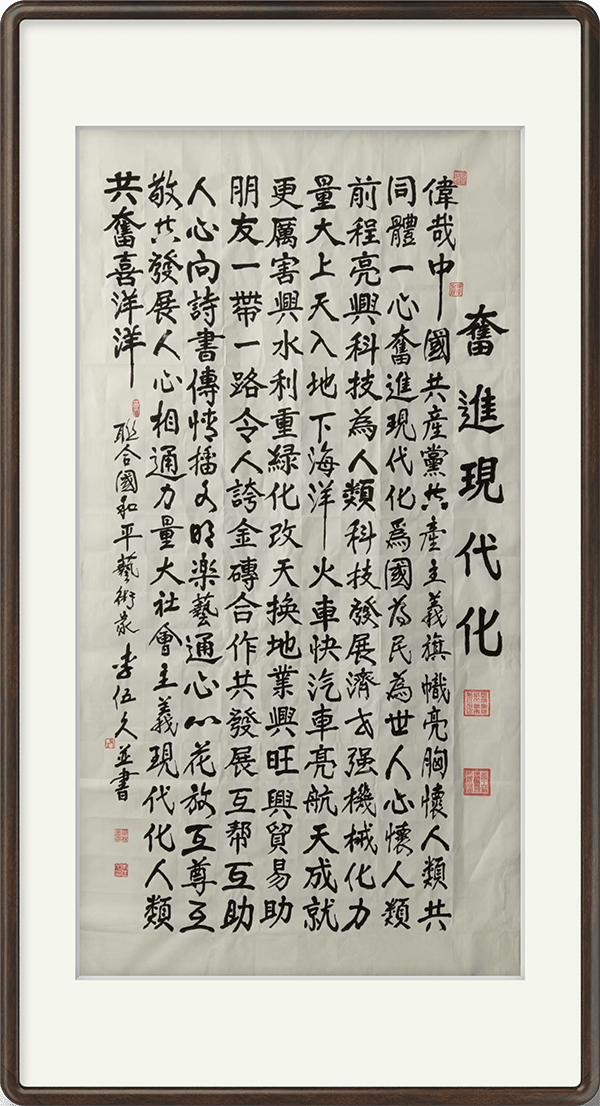 奮進現代化
偉哉中國共產黨共產主義旗幟亮胸懷人類共
同體一心奮進現代化爲國為民為世人心懷人類
前程亮興科技為人類科技發展濟世强機械化力
量大上天入地下海洋火車快汽車亮航天成就
更厲害興水利重綠化改天換地業興旺興貿易助
朋友一帶一路令人誇金磚合作共發展互帮互助
人心向詩書傳情播文明楽藝通心心花放互尊互
敬共發展人心相通力量大社會主義現代化人類
共奮喜洋洋
聯合國和平藝術家李伍久並書